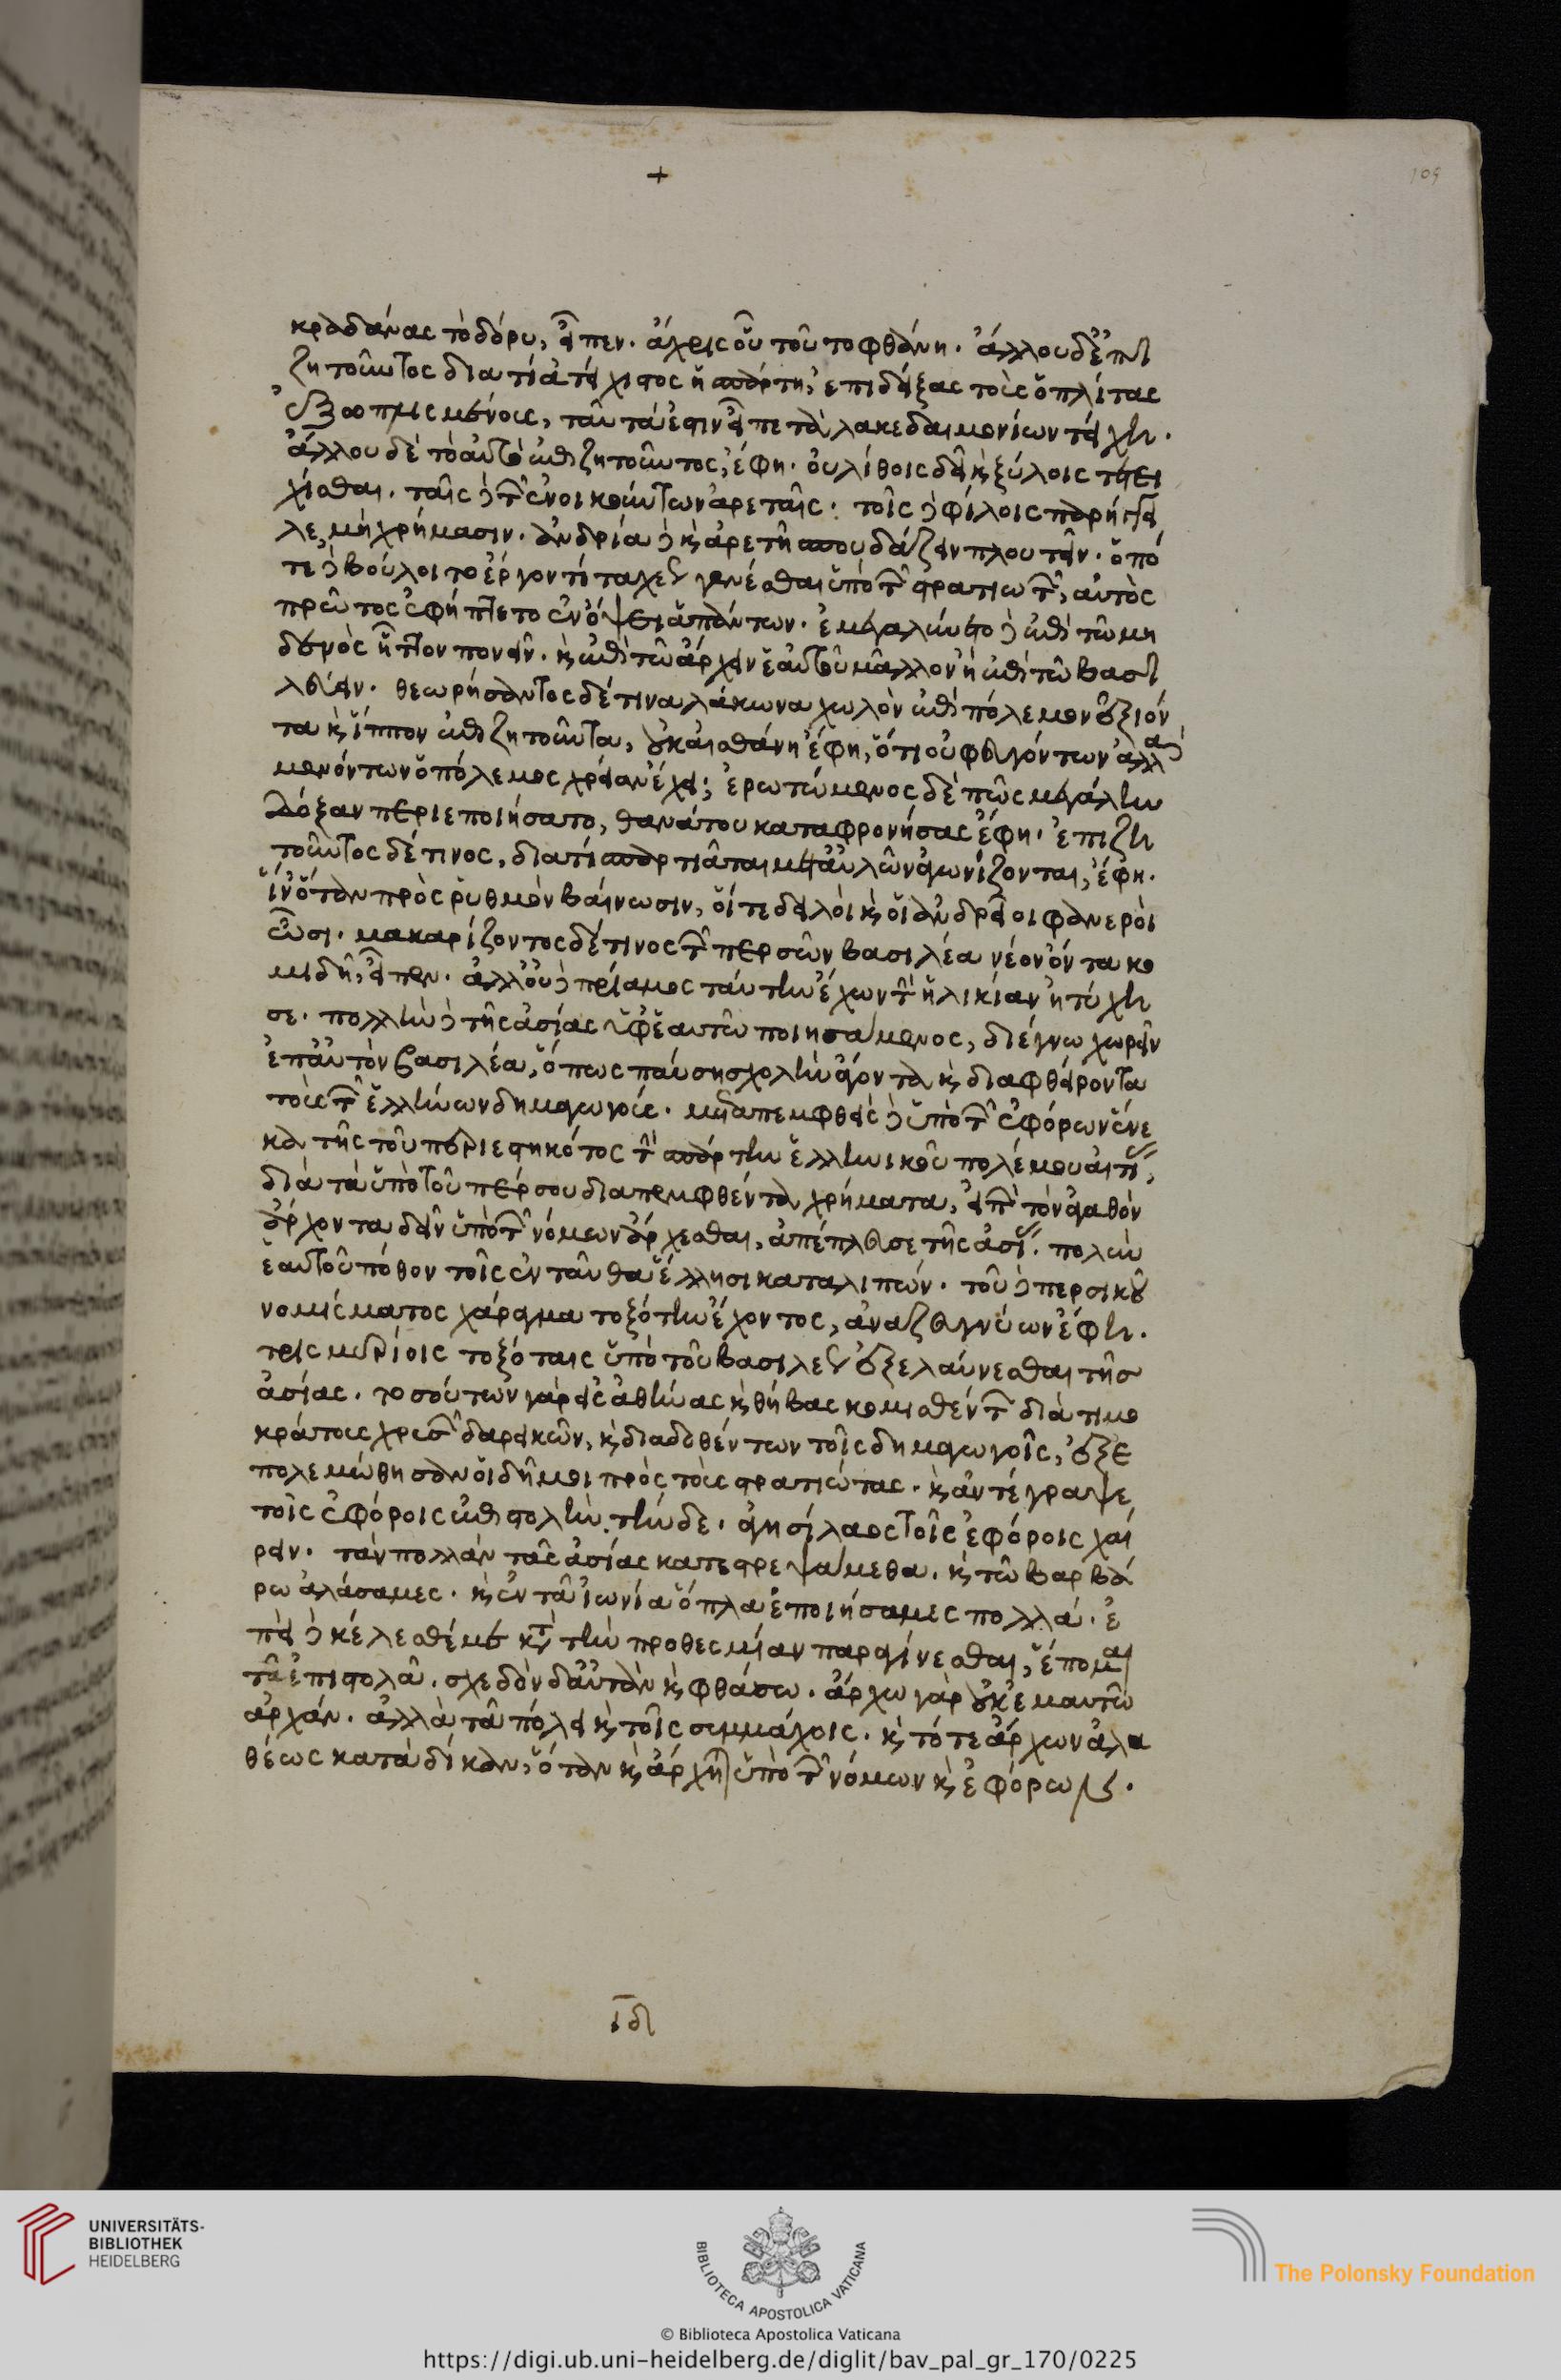 +
109
κραδάνας τὸ δόρυ, εἶπεν. ἄχρις οὗ τοῦτο φθάνη. ἄλλου δ' ἐπι
ζητοῦντος διατί ἀτείχιστος ἡ σπάρτη, ἐπιδείξας τοὺς ὁπλίτας
ἐξωπλισμένους, ταῦτά ἐστιν εἶπε τὰ λακεδαιμονίων τείχη.
ἄλλου δὲ τὸ αὐτὸ ἐπιζητοῦντος, ἔφη. οὐ λίθοις δεῖ καὶ ξύλοις τετει
χίσθαι. ταῖς δὲ τῶν ἐνοικούντων ἀρεταῖς. τοῖς δὲ φίλοις παρήγγελ
λε, μὴ χρήμασιν. ἀνδρία δὲ καὶ ἀρετῆ σπουδάζειν πλουτεῖν. ὁπό
τε δὲ βούλοιτο ἔργον τί ταχεῶς γενέσθαι ὑπὸ τῶν στρατιωτῶν, αὐτὸς
πρῶτος ἐφήπτετο ἐν ὄψει ἁπάντων. ἐμεγαλύνετο δὲ ἐπὶ τῶ μη
δενὸς ἧττον πονεῖν. καὶ ἐπὶ τῶ ἄρχειν ἑαυτοῦ μᾶλλον ἢ ἐπὶ τῶ βασι
λεύειν. θεωρήσαντος δέ τινα λάκωνα χωλὸν ἐπὶ πόλεμον ἐξιόν
τα καὶ ἵππον ἐπιζητοῦντα, οὐκ αἰσθάνη ἔφη, ὅτι οὐ φευγόντων ἀλλὰ
μενόντων ὁ πόλεμος χρείαν ἔχει; ἐρωτώμενος δὲ πῶς μεγάλην
δόξαν περιεποιήσατο, θανάτου καταφρονήσας ἔφη. ἐπιζη
τοῦντος δέ τινος, διατί σπαρτιᾶται μετ' αὐλῶν ἀγωνίζονται, ἔφη.
ἵν' ὅταν πρὸς ῥυθμὸν βαίνωσιν, οἵ τε δειλοὶ καὶ οἱ ἀνδρεῖοι φανεροὶ
ὦσι. μακαρίζοντος δέ τινος τὸν περσῶν βασιλέα νέον ὄντα κο
μιδῆ, εἶπεν. ἀλλ' οὐδὲ πρίαμος ταύτην ἔχων τὴν ἡλικίαν ἠτύχη
σε. πολλὴν δὲ τῆς ἀσίας ὑφ' ἑαυτῶ ποιησάμενος, διέγνω χωρεῖν
ἐπ' αὐτὸν βασιλέα, ὅπως παύση σχολὴν ἄγοντα καὶ διαφθείροντα
τοὺς τῶν ἑλλήνων δημαγωγούς. μεταπεμφθεὶς δὲ ὑπὸ τῶν ἐφόρων ἕνε
κα τῆς τοῦ περιεστηκότος τὴν σπάρτην ἑλληνικοῦ πολέμου αἰτίας,
διὰ τὰ ὑπὸ τοῦ πέρσου διαπεμφθέντα χρήματα, εἰπὼν τὸν ἀγαθὸν
ἄρχοντα δεῖν ὑπὸ τῶν νόμων ἄρχεσθαι, ἀπέπλευσε τῆς ἀσίας. πολὺν
ἑαυτοῦ πόθον τοῖς ἐνταῦθα ἕλλησι καταλιπών. τοῦ δὲ περσικοῦ
νομίσματος χάραγμα τοξότην ἔχοντος, ἀναζευγνύων ἔφη.
τρισμυρίοις τοξόταις ὑπὸ τοῦ βασιλέως ἐξελαύνεσθαι τῆς
ἀσίας. τοσούτων γὰρ εἰς ἀθήνας καὶ θήβας κομισθέντων διὰ τιμο
κράτους χρυσῶν δαρεικῶν, καὶ διαδοθέντων τοῖς δημαγωγοῖς, ἐξε
πολεμώθησαν οἱ δῆμοι πρὸς τοὺς στρατιώτας. καὶ ἀντέγραψε
τοῖς ἐφόροις ἐπιστολὴν τήνδε. ἀγησίλαος τοῖς ἐφόροις χαί
ρειν. τὰν πολλὰν τᾶς ἀσίας κατεστρεψάμεθα. καὶ τῶ βαρβά
ρω ἀλάσαμες. καὶ ἐν τᾶ ἰωνία ὅπλα ἐποιήσαμες πολλά. ἐ
πεὶ δὲ κέλεσθέ με κατὰ τὴν προθεσμίαν παραγίνεσθαι, ἕπομαι
τᾶ ἐπιστολᾶ. σχεδὸν δ' αὐτὰν καὶ φθάσω. ἄρχω γὰρ οὐκ ἐμαυτῶ
ἀρχάν. ἀλλὰ τᾶ πόλει καὶ τοῖς συμμάχοις. καὶ τότε ἄρχων ἀλα
θέως κατὰ δίκαν, ὅταν καὶ ἄρχηται ὑπὸ τῶν νόμων καὶ ἐφόρων.
ιδ
UNIVERSITÄTS-
BIBLIOTHEK
HEIDELBERG
BIBLIOTECA APOSTOLICA VATICANA
The Polonsky Foundation
© Biblioteca Apostolica Vaticana
https://digi.ub.uni-heidelberg.de/diglit/bav_pal_gr_170/0225